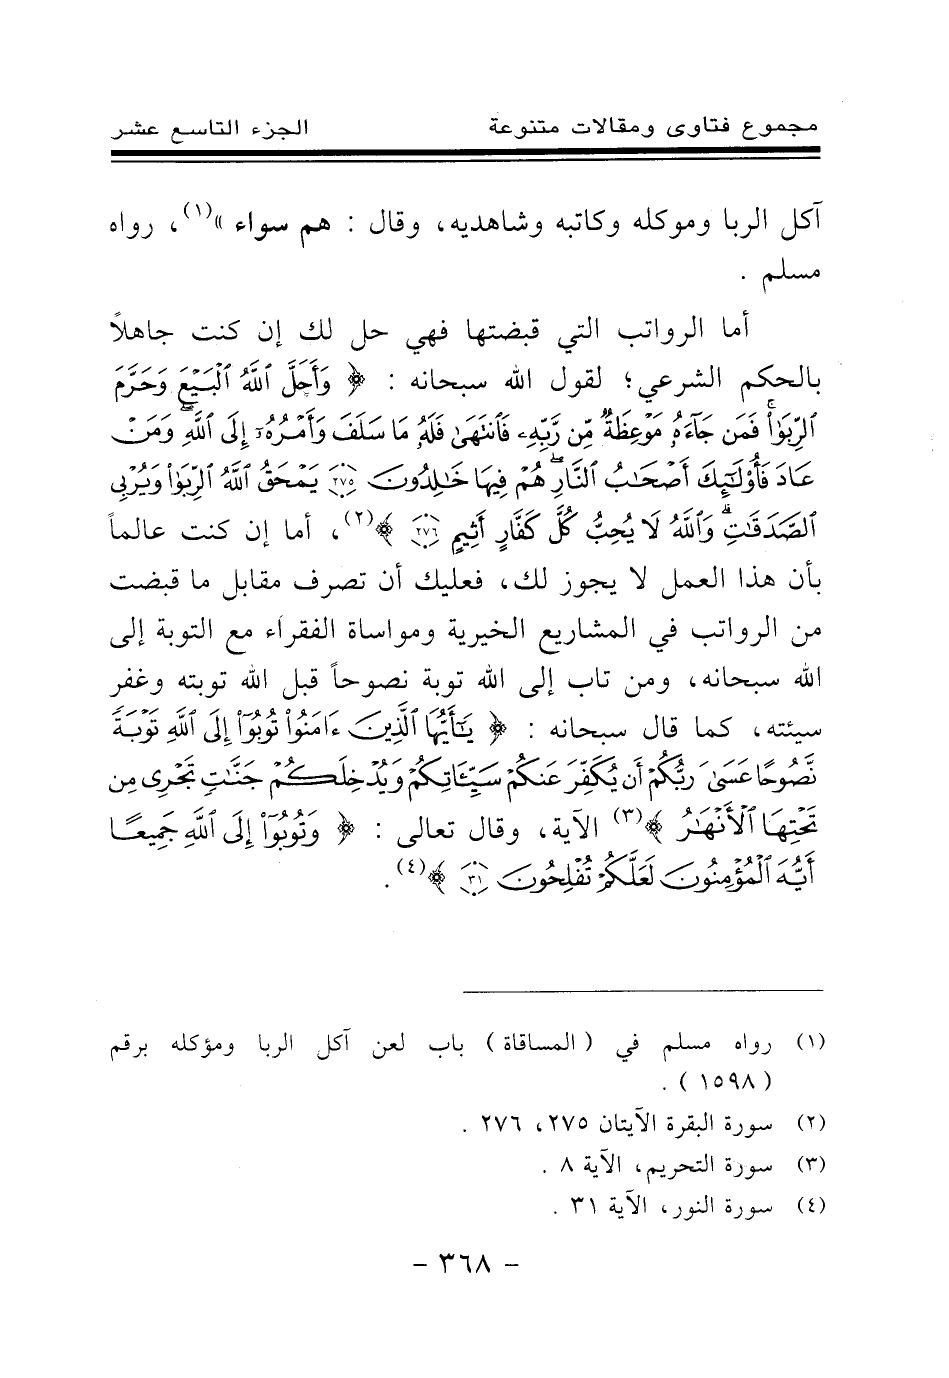 مجموع فتاوى ومقالات متنوعة الجزء التاسع عشر
آكل الربا وموكله وكاتبه وشاهديه، وقال : هم سواء »(١)، رواه
مسلم .
أما الرواتب التي قبضتها فهي حل لك إن كنت جاهلاً
بالحكم الشرعي؛ لقول الله سبحانه : ﴿ وَأَحَلَّ ٱللَّهُ ٱلْبَيْعَ وَحَرَّمَ
ٱلرِّبَوٰا۟ ۚ فَمَن جَآءَهُۥ مَوْعِظَةٌ مِّن رَّبِّهِۦ فَٱنتَهَىٰ فَلَهُۥ مَا سَلَفَ وَأَمْرُهُۥٓ إِلَى ٱللَّهِ ۖ وَمَنْ
عَادَ فَأُو۟لَـٰٓئِكَ أَصْحَـٰبُ ٱلنَّارِ ۖ هُمْ فِيهَا خَـٰلِدُونَ ٢٧٥ يَمْحَقُ ٱللَّهُ ٱلرِّبَوٰا۟ وَيُرْبِى
ٱلصَّدَقَـٰتِ ۗ وَٱللَّهُ لَا يُحِبُّ كُلَّ كَفَّارٍ أَثِيمٍ ٢٧٦ ﴾(٢)، أما إن كنت عالماً
بأن هذا العمل لا يجوز لك، فعليك أن تصرف مقابل ما قبضت
من الرواتب في المشاريع الخيرية ومواساة الفقراء مع التوبة إلى
الله سبحانه، ومن تاب إلى الله توبة نصوحاً قبل الله توبته وغفر
سيئته، كما قال سبحانه : ﴿ يَـٰٓأَيُّهَا ٱلَّذِينَ ءَامَنُوا۟ تُوبُوٓا۟ إِلَى ٱللَّهِ تَوْبَةً
نَّصُوحًا عَسَىٰ رَبُّكُمْ أَن يُكَفِّرَ عَنكُمْ سَيِّـَٔاتِكُمْ وَيُدْخِلَكُمْ جَنَّـٰتٍ تَجْرِى مِن
تَحْتِهَا ٱلْأَنْهَـٰرُ ﴾(٣) الآية، وقال تعالى : ﴿ وَتُوبُوٓا۟ إِلَى ٱللَّهِ جَمِيعًا
أَيُّهَ ٱلْمُؤْمِنُونَ لَعَلَّكُمْ تُفْلِحُونَ ٣١ ﴾(٤).
(١) رواه مسلم في ( المساقاة ) باب لعن آكل الربا ومؤكله برقم
( ١٥٩٨ ) .
(٢) سورة البقرة الآيتان ٢٧٥، ٢٧٦ .
(٣) سورة التحريم، الآية ٨ .
(٤) سورة النور، الآية ٣١ .
- ٣٦٨ -